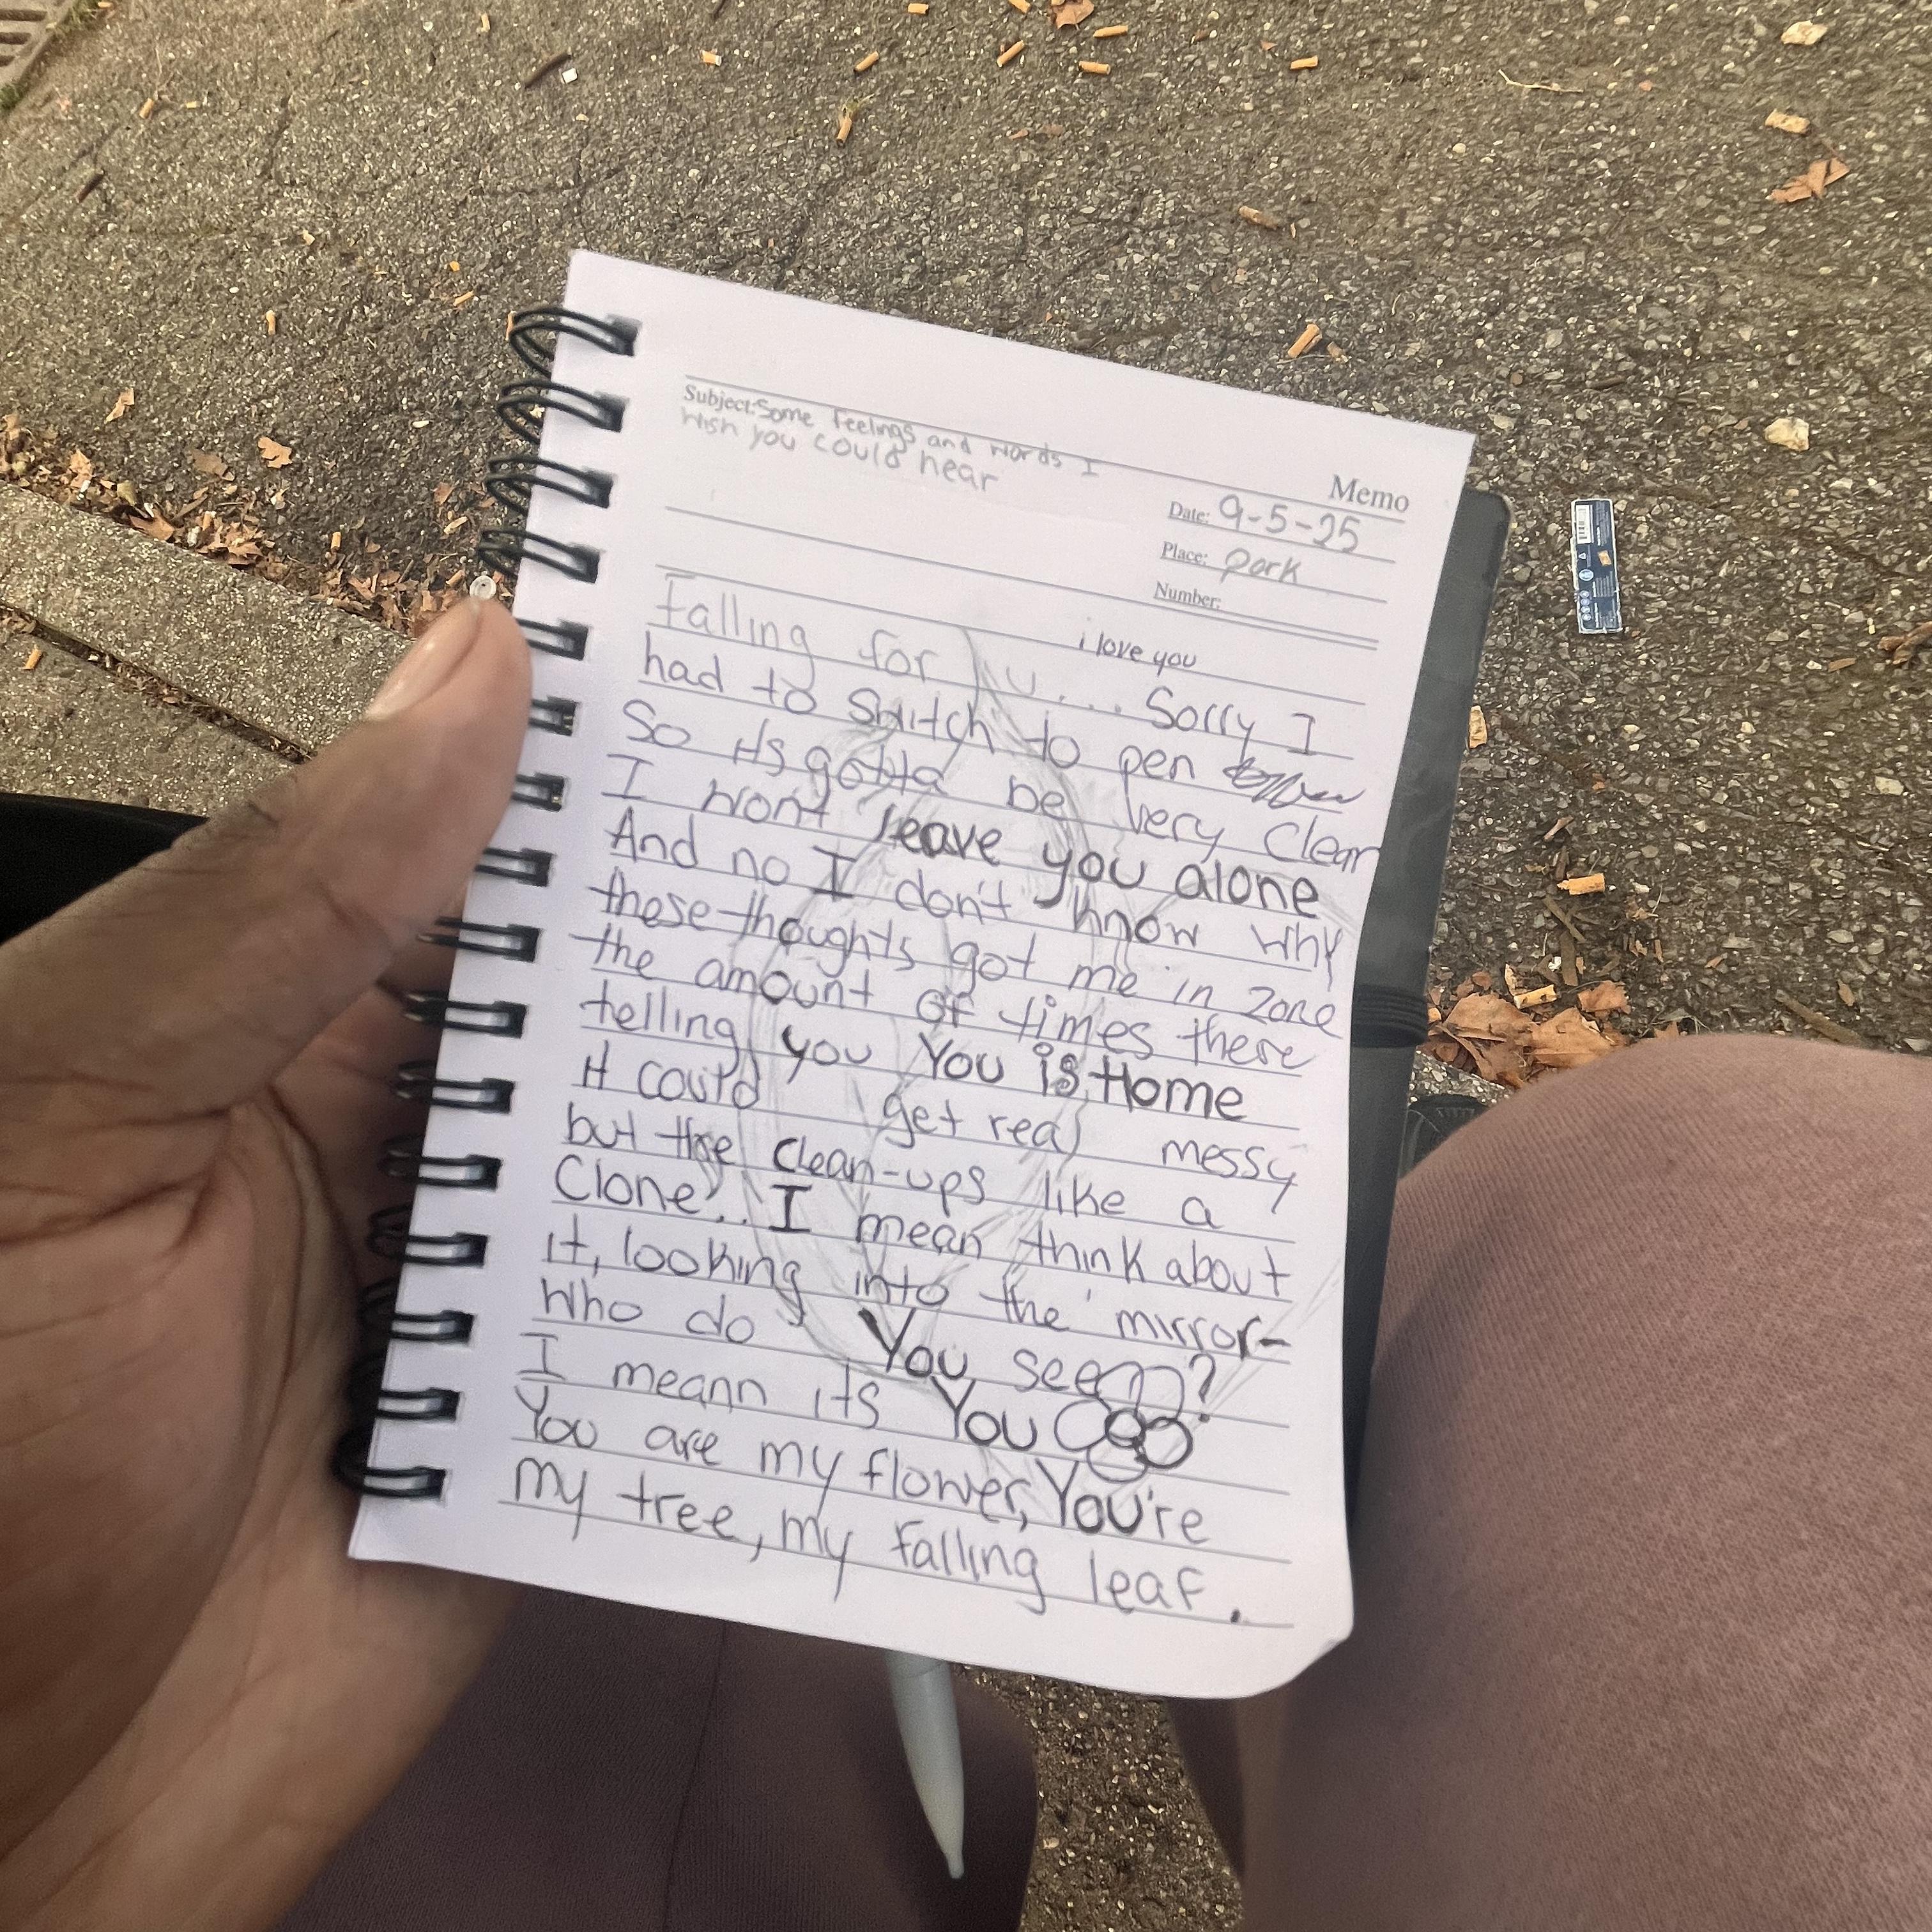 Subject: Some feelings and words I
wish you could hear
Memo
Date: 9-5-25
Place: park
Number:
i love you
Falling for u.... Sorry I
had to switch to pen
So its gotta be very Clear
I wont leave you alone
And no I don't know why
these thoughts got me in zone
the amount of times there
telling you You is Home
It could get real messy
but the clean-ups like a
Clone... I mean think about
it, looking into the mirror-
Who do You see?
I meann its You
You are my flower, You're
my tree, my falling leaf.